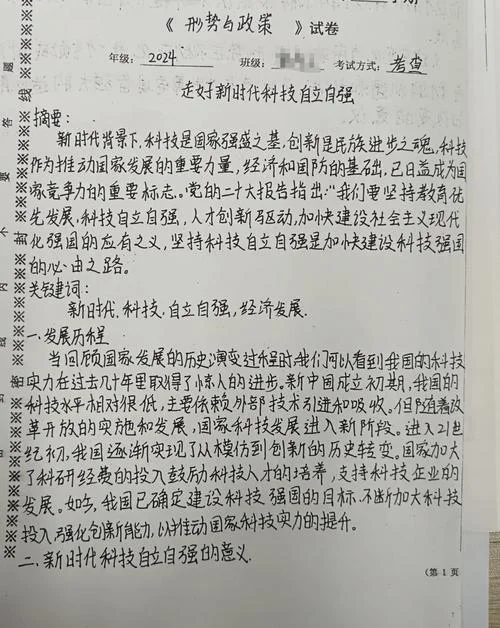 《 形势与政策 》试卷
年级: 2024 班级: 考试方式: 考查
走好新时代科技自立自强
摘要:
新时代背景下,科技是国家强盛之基,创新是民族进步之魂,科技
作为推动国家发展的重要力量,经济和国防的基础,已日益成为国
家竞争力的重要标志。党的二十大报告指出:"我们要坚持教育优
先发展,科技自立自强,人才创新驱动,加快建设社会主义现代
化强国的应有之义,坚持科技自立自强是加快建设科技强国
的必由之路。
关键词:
新时代.科技.自立自强,经济发展.
一.发展历程
当回顾国家发展的历史演变过程时,我们可以看到我国的科技
实力在过去几十年里取得了惊人的进步。新中国成立初期,我国的
科技水平相对很低,主要依赖外部技术引进和吸收。但随着改
革开放的实施和发展,国家科技发展进入新阶段。进入21世
纪初,我国逐渐实现了从模仿到创新的历史转变。国家加大
了科研经费的投入鼓励科技人才的培养,支持科技企业的
发展。如今,我国已确定建设科技强国的目标.不断加大科技
投入,强化创新能力,以推动国家科技实力的提升。
二.新时代科技自立自强的意义.
(第 1 页
答
要
不
内
线
封
密